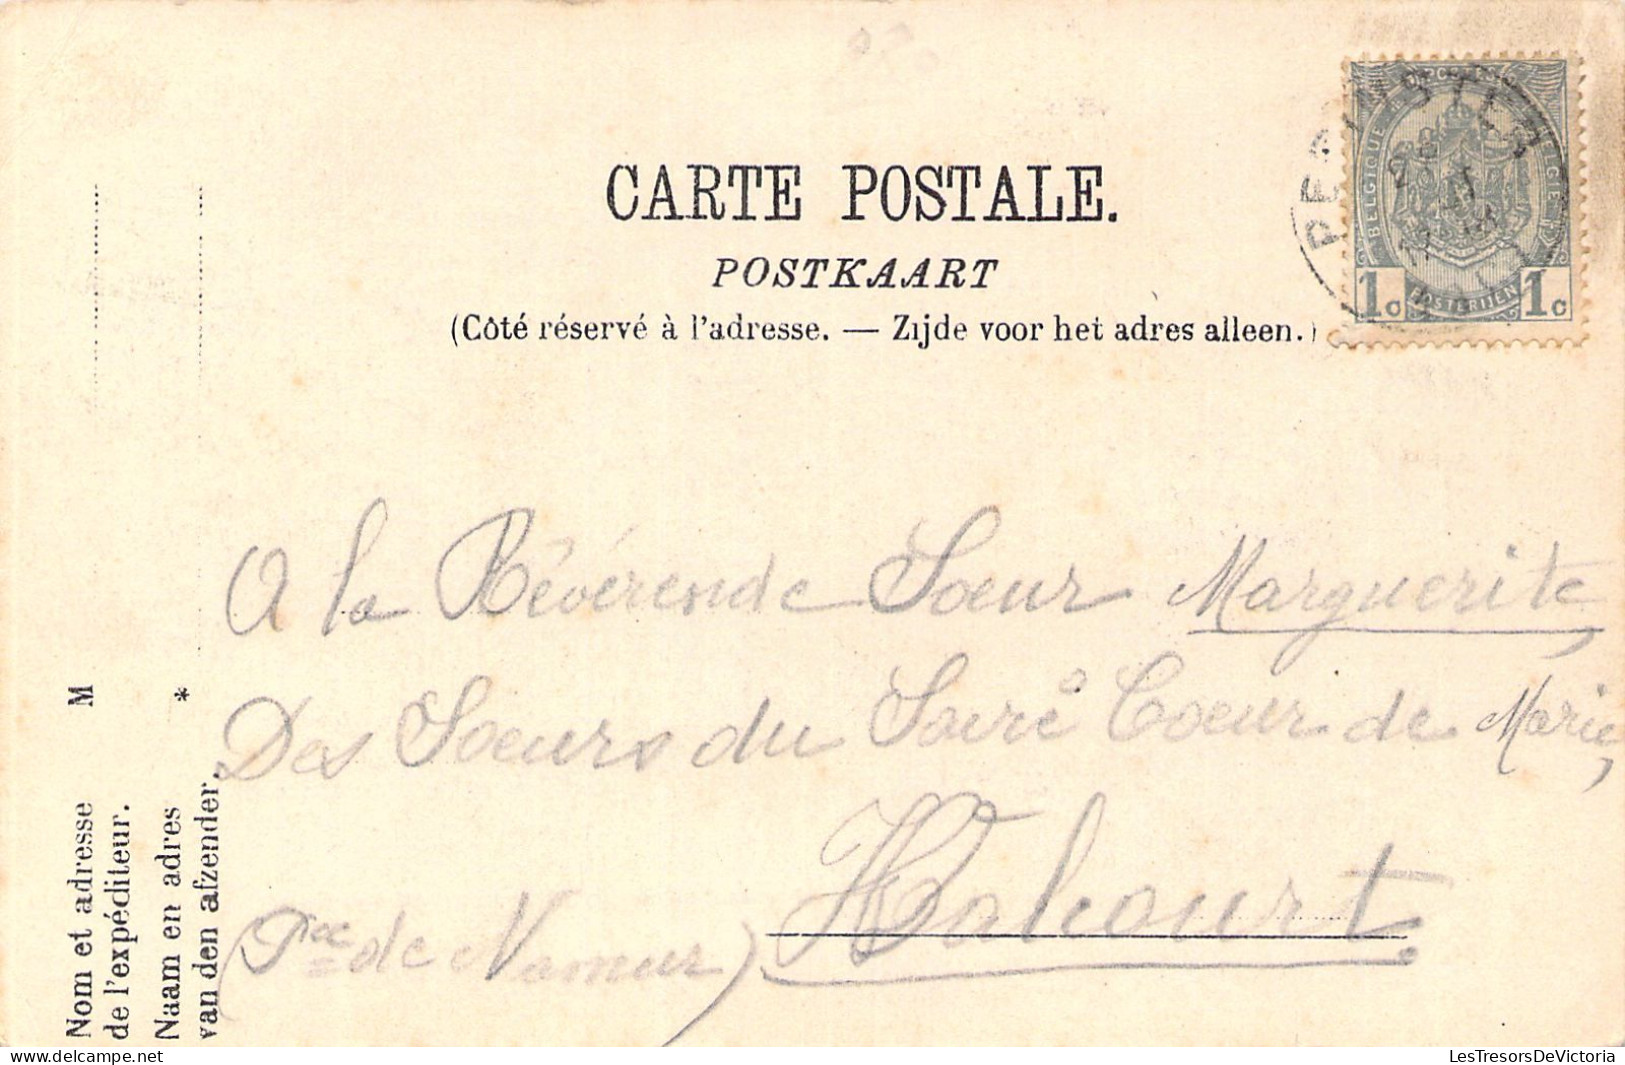 CARTE POSTALE.
POSTKAART
(Côté réservé à l'adresse. — Zijde voor het adres alleen.)
BELGIQUE
BELGIE
1c POSTERIJEN 1c
A la Révérende Soeur Marguerite,
Des Soeurs du Sacré Coeur de Marie,
Hahourt.
(Pce de Namur)
Nom et adresse M
de l'expéditeur.
Naam en adres *
van den afzender.
LesTresorsDeVictoria